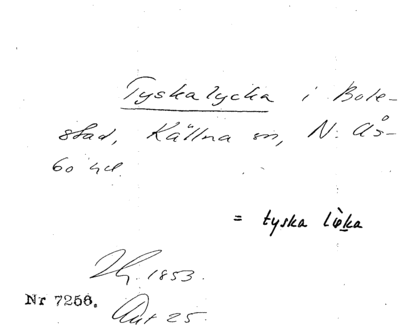 Tyskalycka i Bole-
stad, Källna sn, N. Ås-
bo hd.
= tyska lyka
Hg. 1853.
Nr 7256.
Ant 25.